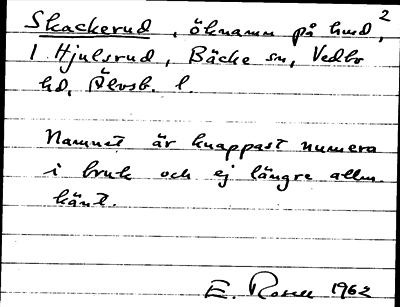 Skackerud, öknamn på hmd, 2
1 Hjulsrud, Bäcke sn, Vedbo
hd, Älvsb. l.
Namnet är knappast numera
i bruk och ej längre allm.
känt.
E. Rosell 1962